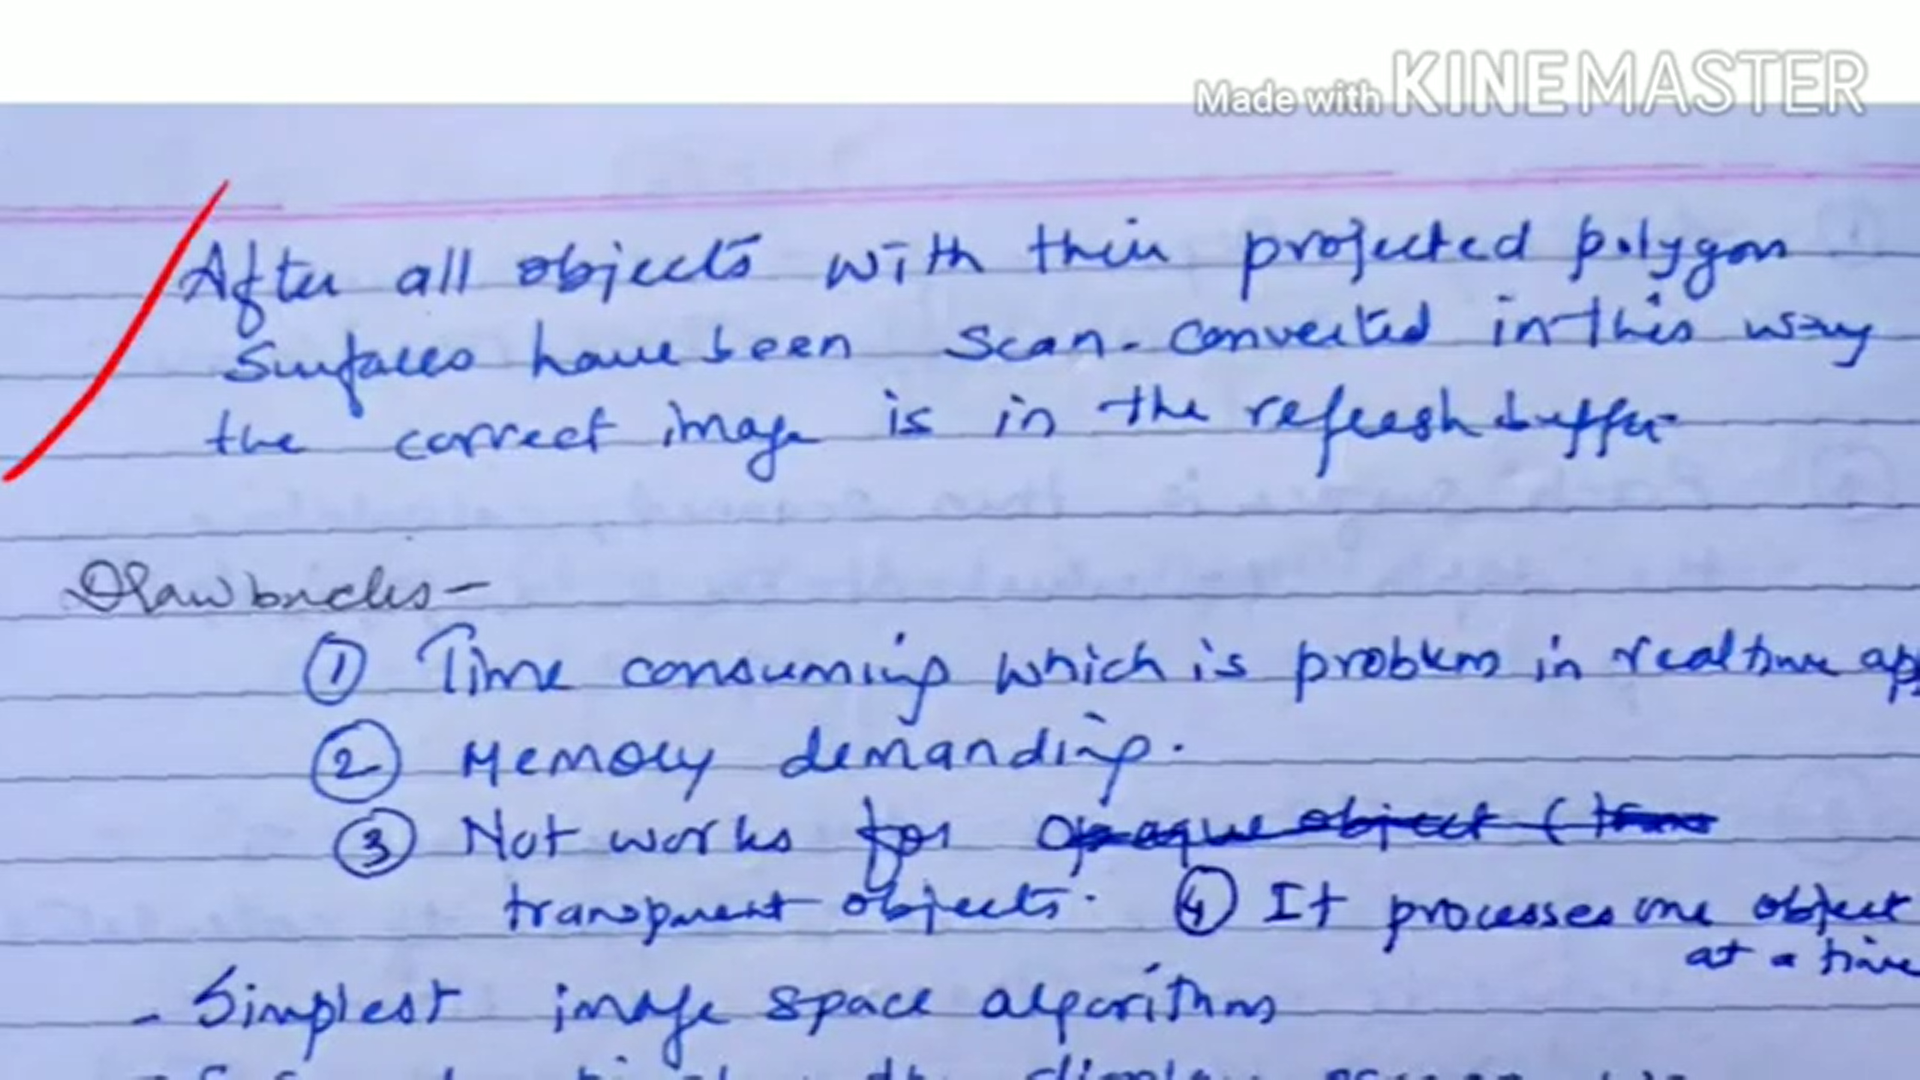 Made with KINEMASTER
After all objects with their projected polygon
surfaces have been scan-converted in this way
the correct image is in the refresh buffer
Drawbacks-
① Time consuming which is problem in real time app
② Memory demanding.
③ Not works for opaque object (trans
transparent objects. ④ It processes one object
at a time
- Simplest image space algorithm